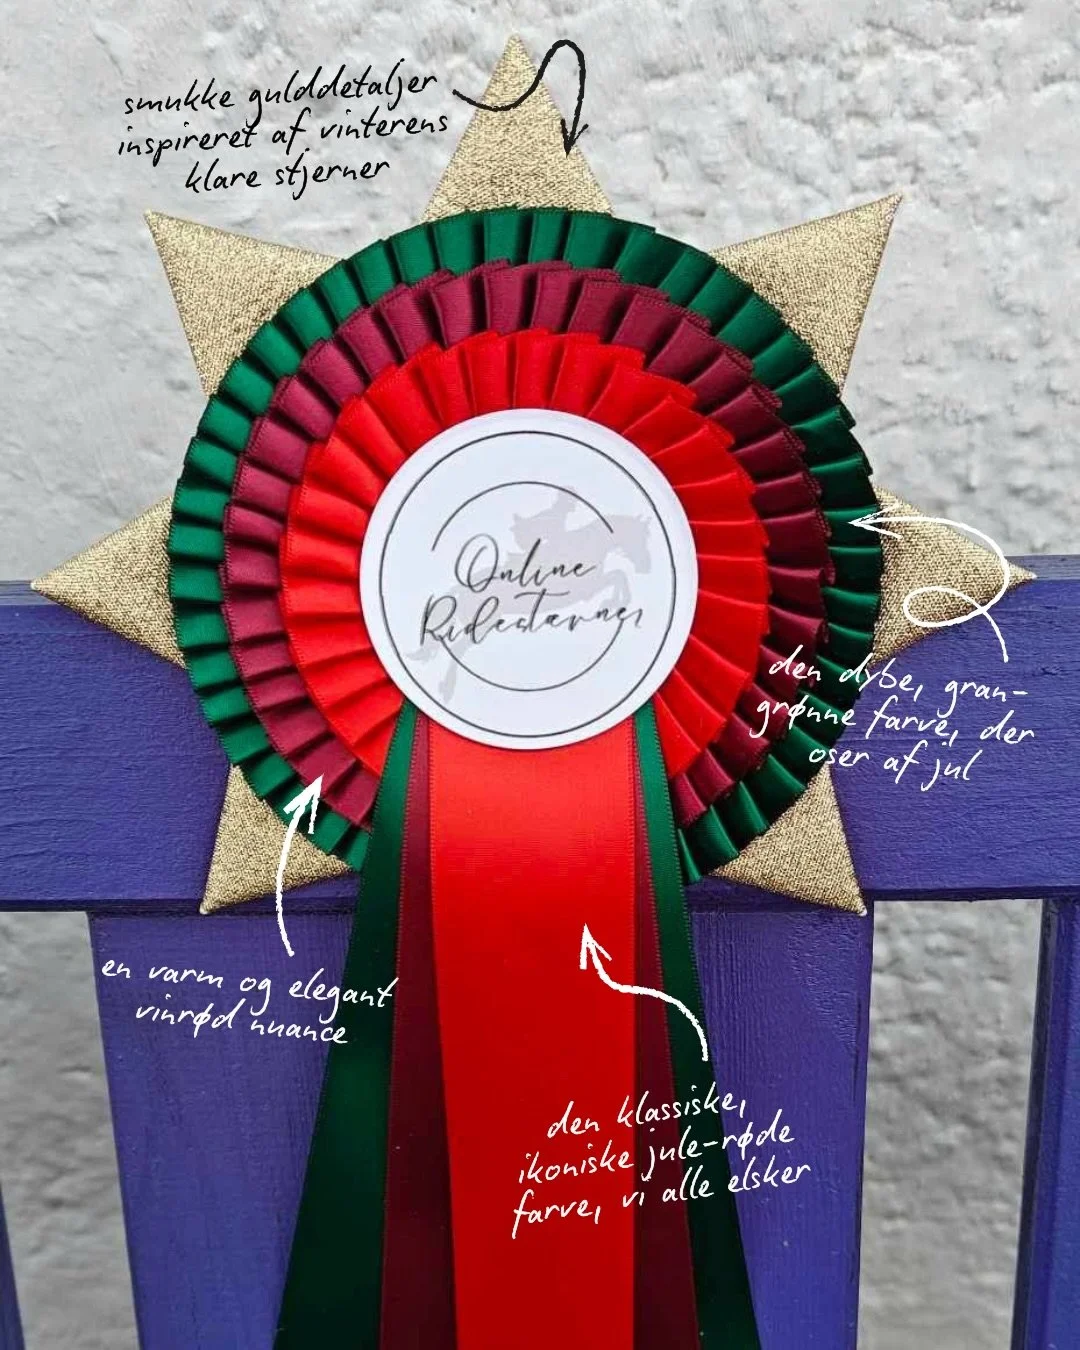 smukke gulddetaljer
inspireret af vinterens
klare stjerner
Online
Ridestævner
den dybe, gran-
grønne farve, der
oser af jul
en varm og elegant
vinrød nuance
den klassiske,
ikoniske jule-røde
farve, vi alle elsker